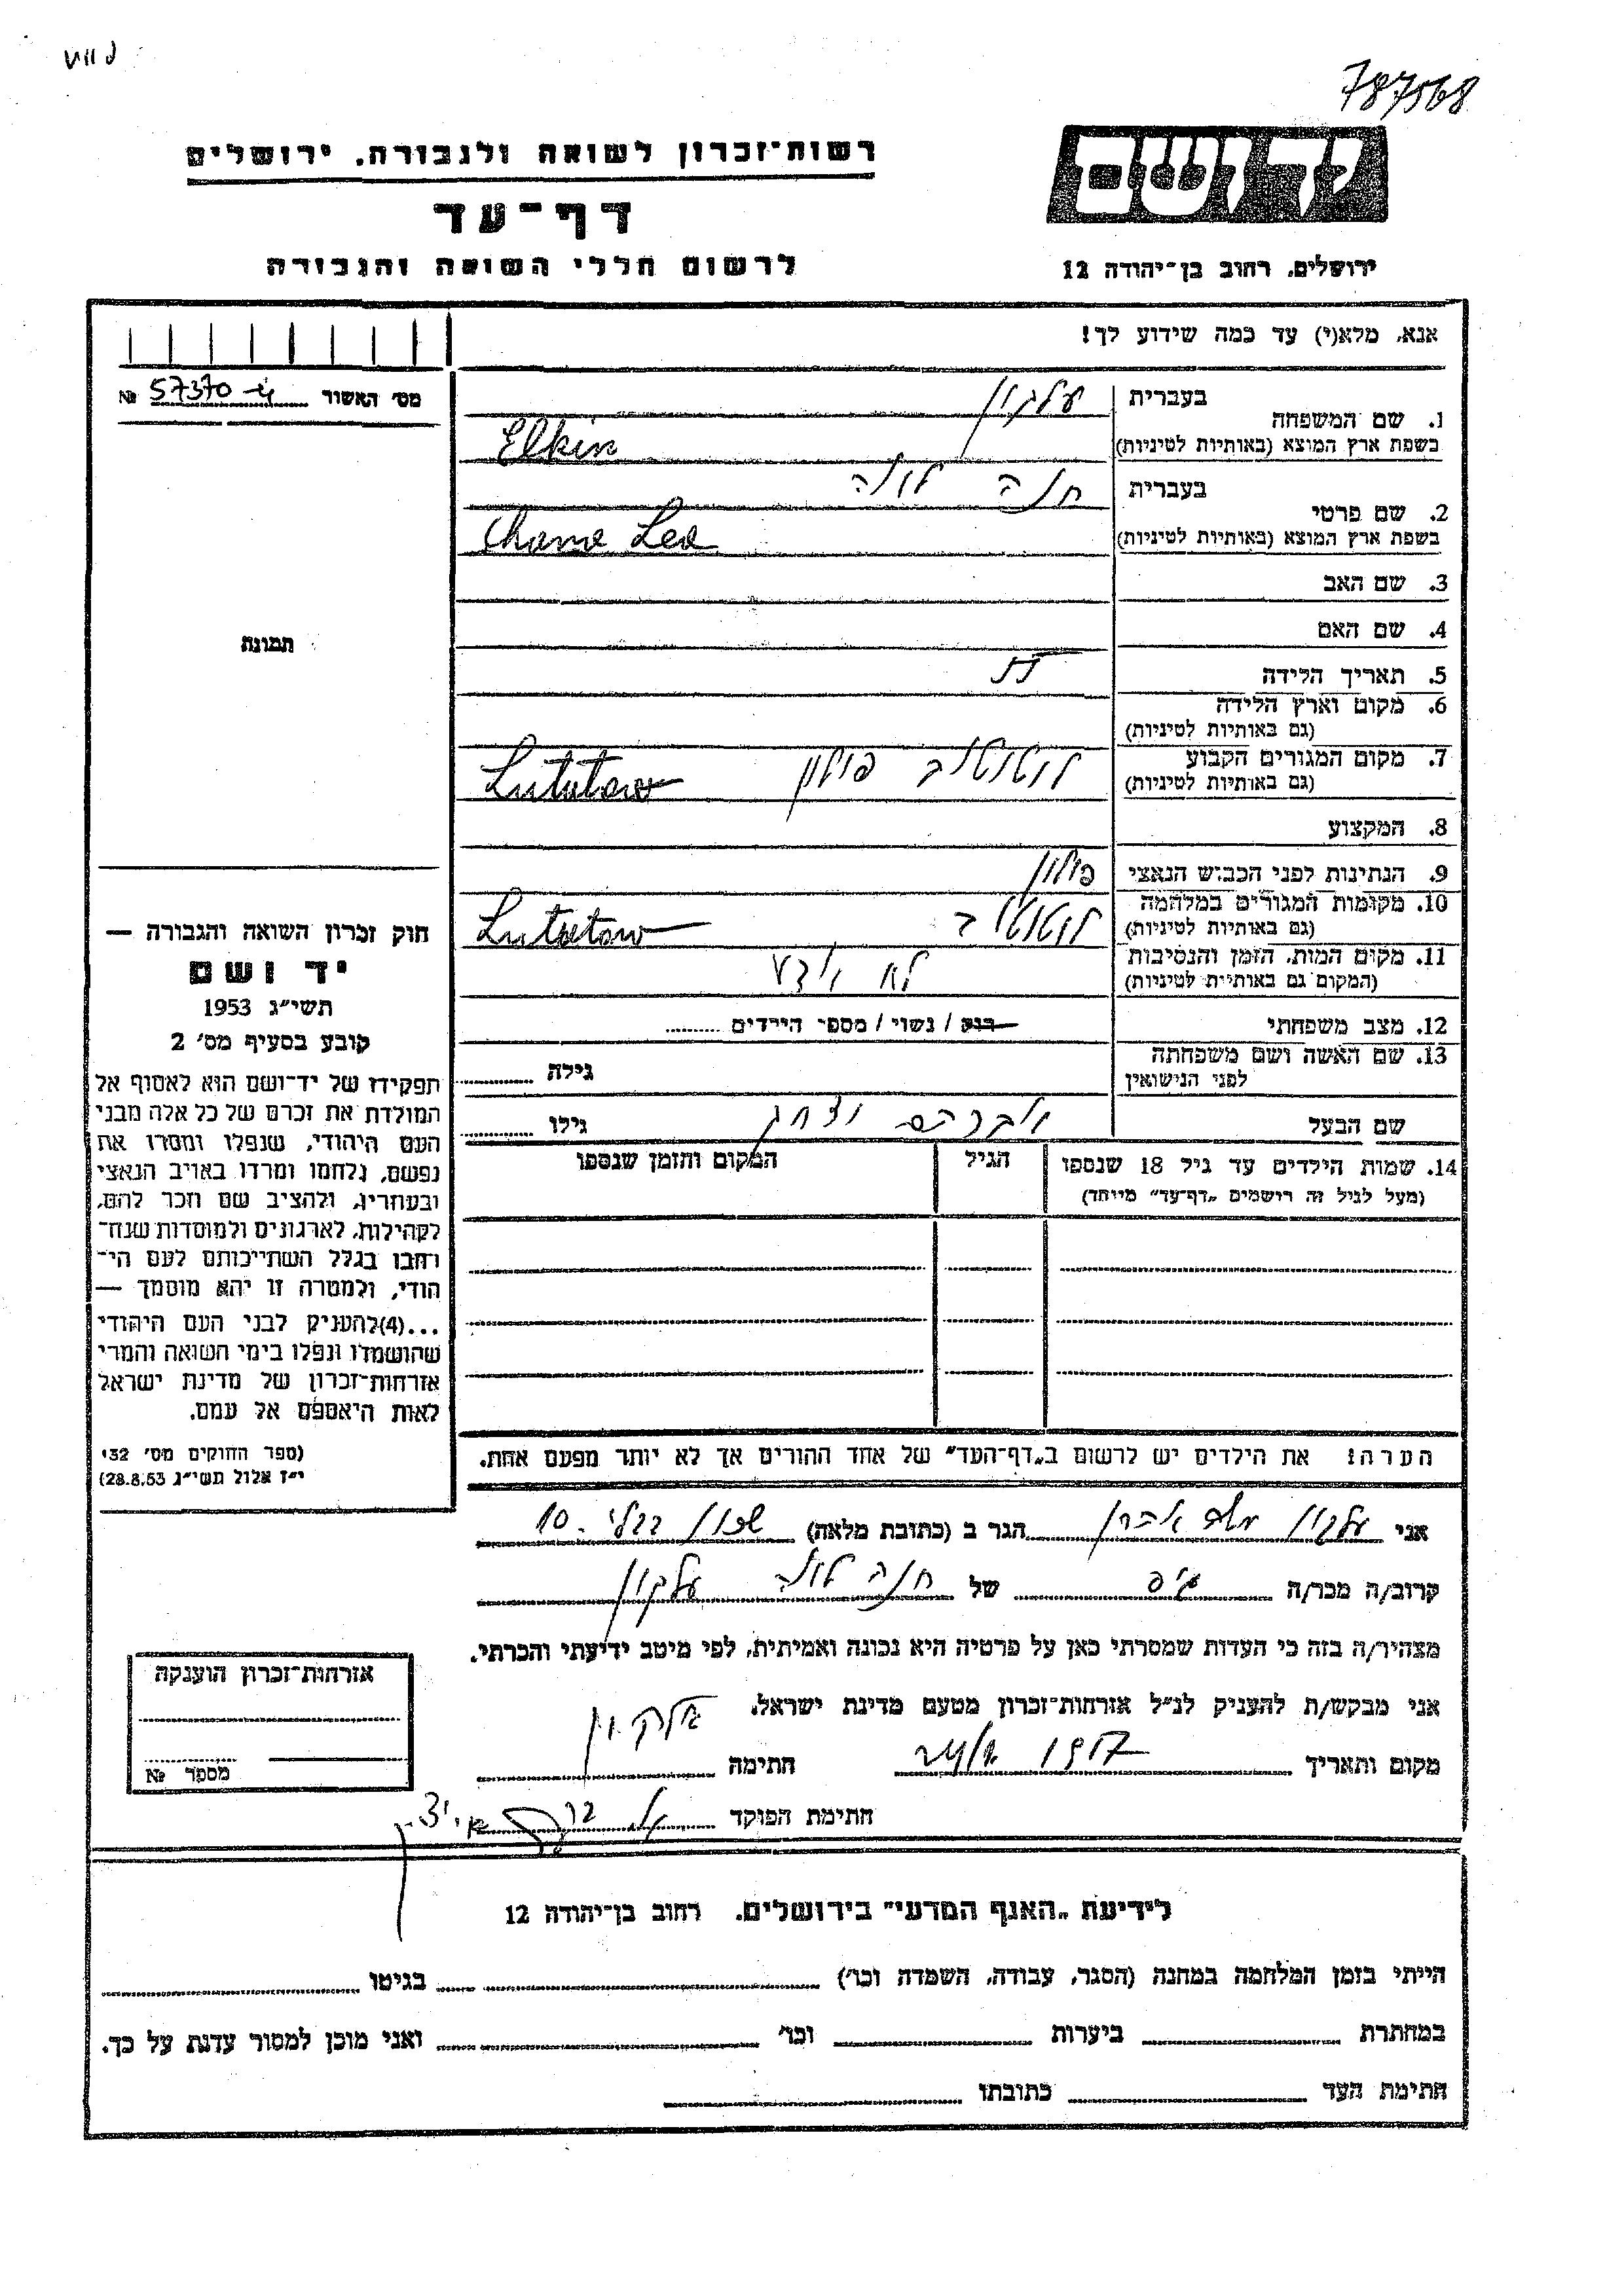 787568
רשות־זכרון לשואה ולגבורה, ירושלים
דף־עד
לרשום חללי השואה והגבורה
יד ושם
ירושלים, רחוב בן־יהודה 12
אנא, מלא(י) עד כמה שידוע לך!
מס׳ האשור 57370 №
1. שם המשפחה
בעברית עלקין
בשפת ארץ המוצא (באותיות לטיניות) Elkin
2. שם פרטי
בעברית חנה לאה
בשפת ארץ המוצא (באותיות לטיניות) Chana Lea
3. שם האב
4. שם האם
5. תאריך הלידה
6. מקום וארץ הלידה
(גם באותיות לטיניות)
7. מקום המגורים הקבוע פולין Lututow
(גם באותיות לטיניות)
8. המקצוע
9. הנתינות לפני הכבוש הנאצי פולין
10. מקומות המגורים במלחמה Lututow
(גם באותיות לטיניות)
11. מקום המות, הזמן והנסיבות לא ידוע
(המקום גם באותיות לטיניות)
12. מצב משפחתי רווק / נשוי / מספר הילדים
13. שם האשה ושם משפחתה גילה
לפני הנישואין
שם הבעל אברהם יצחק גילו
14. שמות הילדים עד גיל 18 שנספו הגיל המקום והזמן שנספו
(מעל לגיל זה רישמים „דף־עד״ מייחד)
הערה: את הילדים יש לרשום ב„דף־העד״ של אחד ההורים אך לא יותר מפעם אחת.
תמונה
חוק זכרון השואה והגבורה —
יד ושם
תשי״ג 1953
קובע בסעיף מס׳ 2
תפקידו של יד־ושם הוא לאסוף אל
המולדת את זכרם של כל אלה מבני
העם היהודי, שנפלו ומסרו את
נפשם, נלחמו ומרדו באויב הנאצי
ובעוזריו, ולהציב שם וזכר להם,
לקהילות, לארגונים ולמוסדות שנח־
רבו בגלל השתייכותם לעם הי־
הודי, ולמטרה זו יהא מוסמך —
...(4)להעניק לבני העם היהודי
שהושמדו ונפלו בימי השואה והמרי
אזרחות־זכרון של מדינת ישראל
לאות היאספם אל עמם.
(ספר החוקים מס׳ 132
י״ז אלול תשי״ג 28.8.53)
אני עלקין הגר ב (כתובת מלאה) 10
קרוב/ה מכר/ה גיס של חנה לאה עלקין
מצהיר/ה בזה כי העדות שמסרתי כאן על פרטיה היא נכונה ואמיתית, לפי מיטב ידיעתי והכרתי.
אני מבקש/ת להעניק לנ״ל אזרחות־זכרון מטעם מדינת ישראל.
מקום ותאריך חתימה עלקין
חתימת הפוקד
אזרחות־זכרון הוענקה
מספר №
לידיעת „האגף המדעי״ בירושלים. רחוב בן־יהודה 12
הייתי בזמן המלחמה במחנה (הסגר, עבודה, השמדה וכו׳) בגיטו
במחתרת ביערות וכו׳ ואני מוכן למסור עדות על כך.
חתימת העד כתובתו